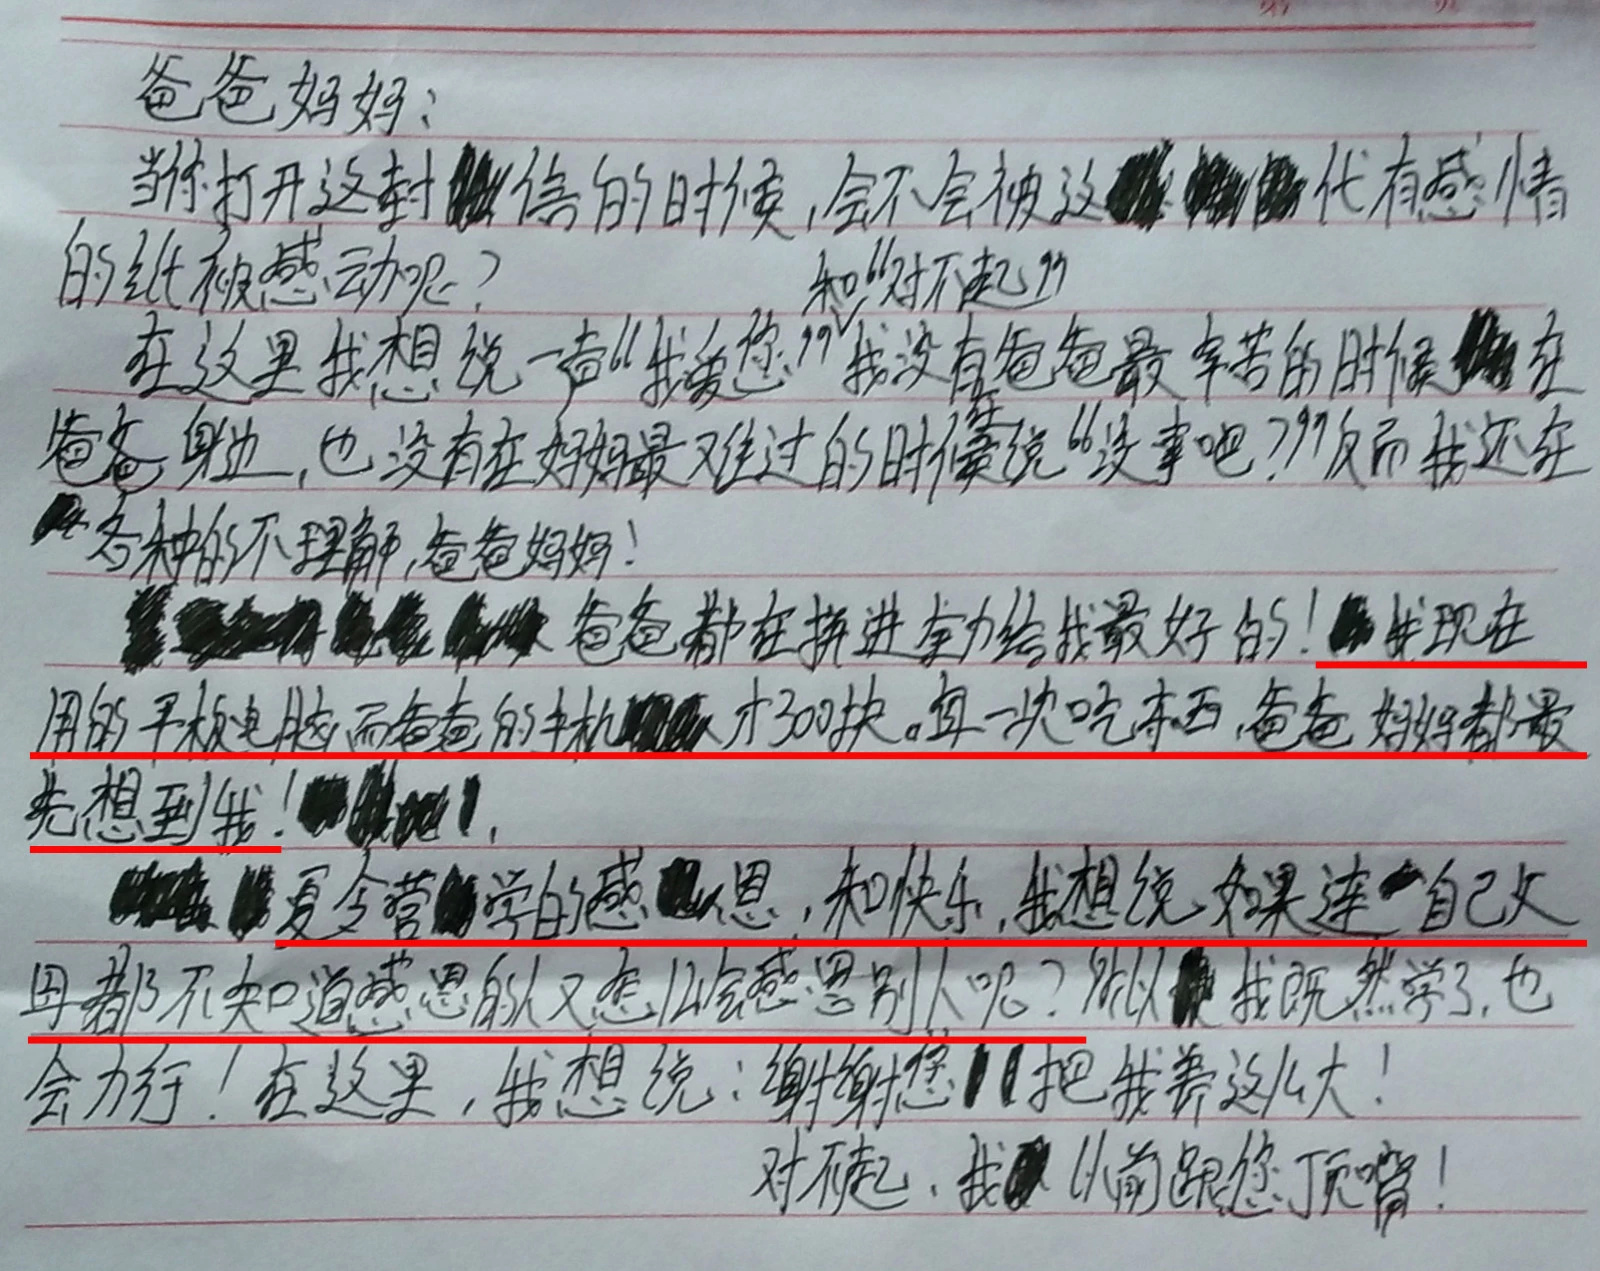 爸爸妈妈：
当你打开这封信的时候，会不会被这代有感情
的纸被感动呢？
和“对不起”
在这里我想说一声“我爱您”我没有爸爸最辛苦的时候在
爸爸身边，也没有在妈妈最难过的时候在说“没事吧？”反而我还在
各种的不理解，爸爸妈妈！
爸爸都在拼进全力给我最好的！我现在
用的平板电脑，而爸爸的手机才300块。每一次吃东西，爸爸妈妈都最
先想到我！
夏令营学的感恩，和快乐，我想说，如果连自己父
母都不知道感恩的人又怎么会感恩别人呢？所以我既然学了，也
会力行！在这里，我想说：谢谢您把我养这么大！
对不起，我以前跟您顶嘴！